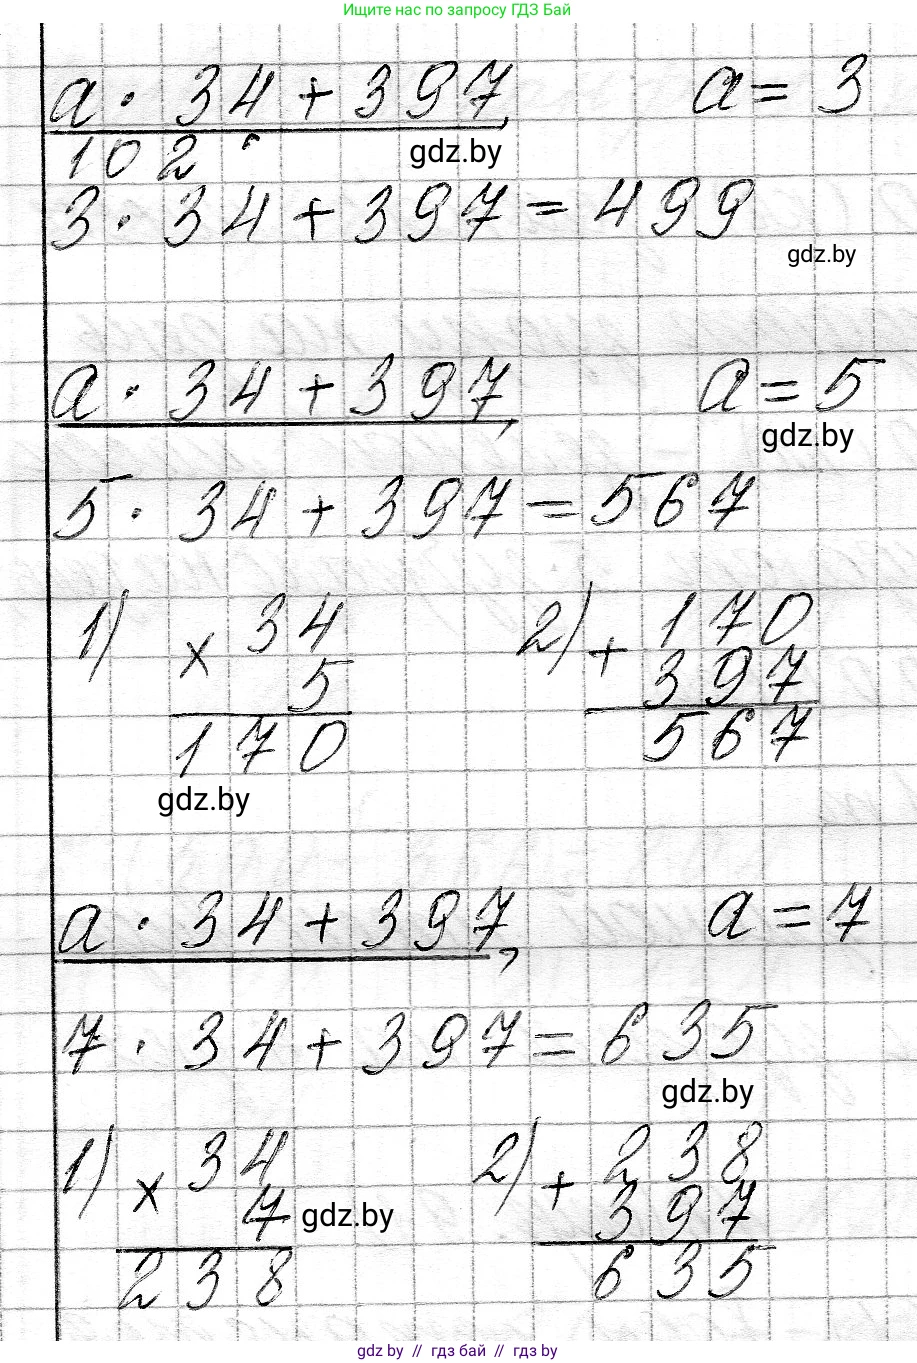 Ищите нас по запросу ГДЗ Бай
a · 34 + 397, a = 3
102
gdz.by
3 · 34 + 397 = 499
gdz.by
a · 34 + 397, a = 5
gdz.by
5 · 34 + 397 = 567
1) 34 2) 170
× +
5 397
170 567
gdz.by
a · 34 + 397, a = 7
7 · 34 + 397 = 635
gdz.by
1) 34 2) 238
× +
7 gdz.by 397
238 635
gdz.by // гдз бай // гдз by